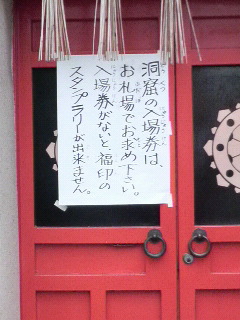 洞窟の入場券は、
お札場でお求め下さい。
入場券がないと、福印の
スタンプラリーが出来ません。